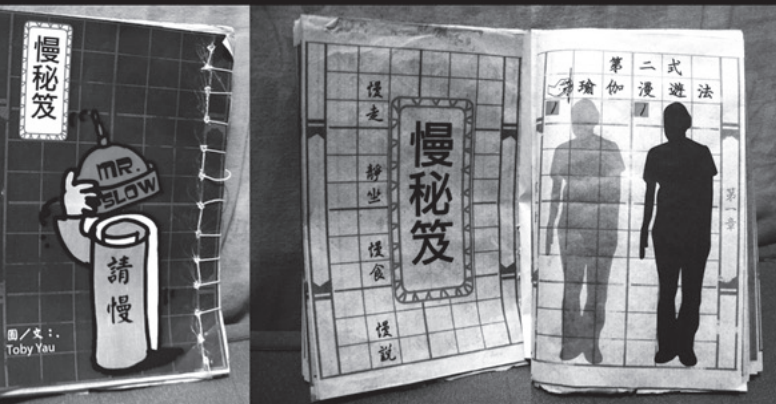 慢秘笈
MR.
SLOW
請慢
圖/文:.
Toby Yau
慢走
靜坐
慢食
慢說
慢秘笈
第二式
瑜伽漫遊法
第一章